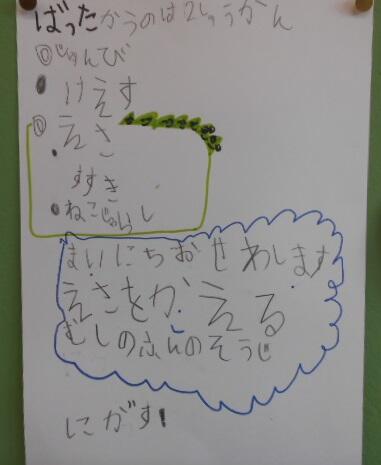 ばったかうのは2しゅうかん
◎じゅんび
● けえす
◎ えさ
・ すすき
● ねこじゃらし
まいにちおせわします
えさをかえる
むしのふんのそうじ
にがす!